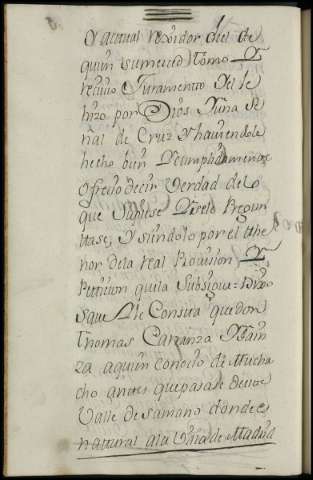 Y actual rexidor de el de
quien su merced tomo Y
recivio Juramento Yel le
hizo por Dios Y una Se
ñal de Cruz Y haviendole
hecho bien Y cumplidamente
ofrecio decir Verdad de lo
que Supiese Y sele Pregun
tase, Y siendolo por el the
nor de la real Provision Y
Peticion que la Subsigue = Dixo
que le Consta que don
Thomas Carranza
za a quien conocio de Mucha
cho antes que pasase de este
Valle de Samano donde es
natural a la Villa de Madrid